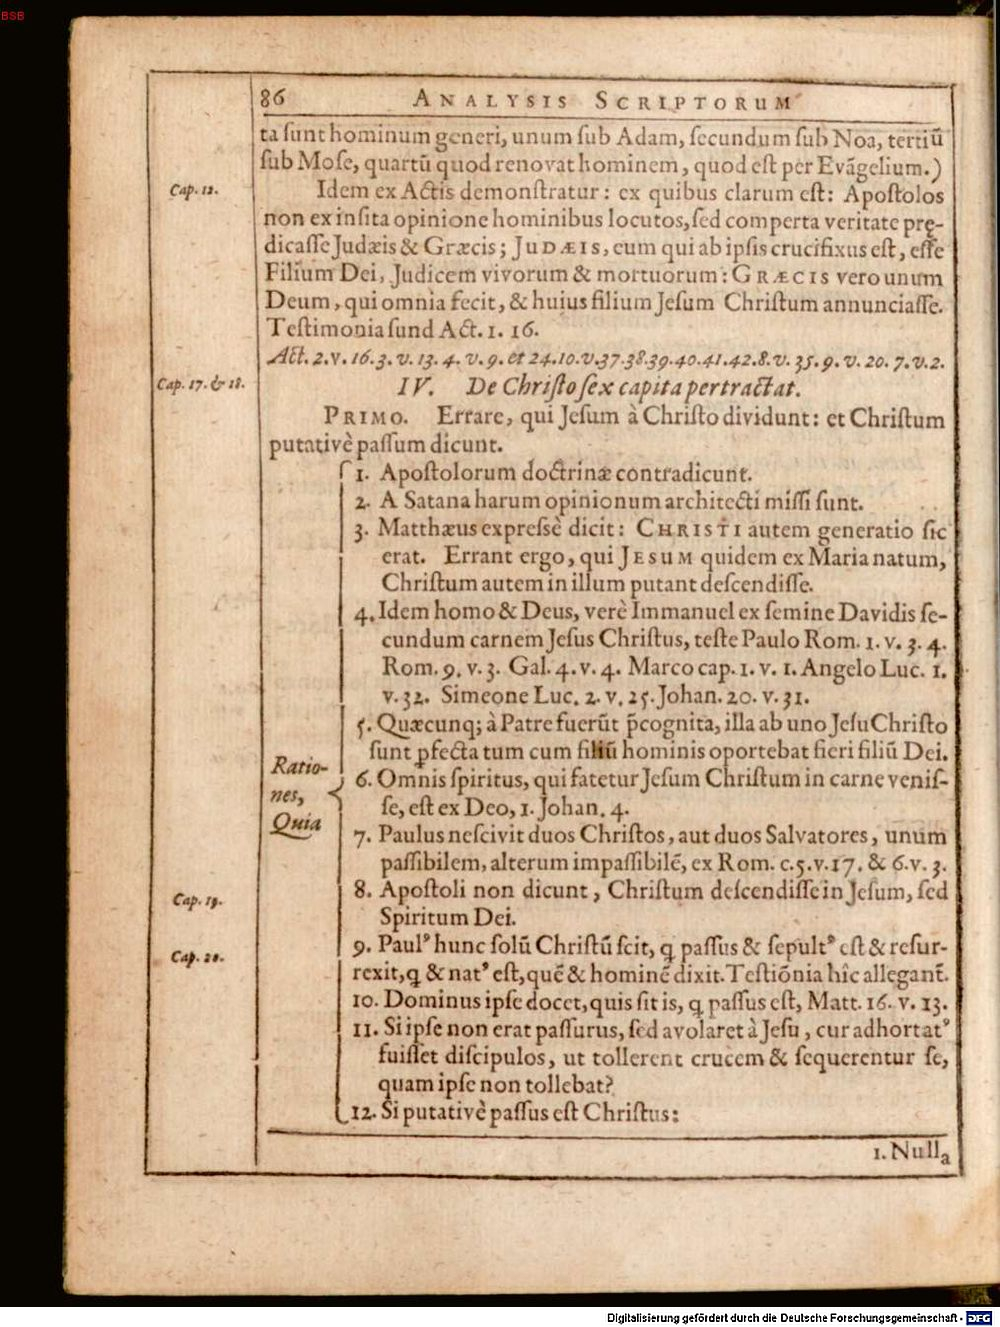 BSB
86 ANALYSIS SCRIPTORUM
ta sunt hominum generi, unum sub Adam, secundum sub Noa, tertiū
sub Mose, quartū quod renovat hominem, quod est per Evāgelium.)
Cap. 12.
Idem ex Actis demonstratur: ex quibus clarum est: Apostolos
non ex insita opinione hominibus locutos, sed comperta veritate prę-
dicasse Judæis & Græcis; JUDÆIS, eum qui ab ipsis crucifixus est, esse
Filium Dei, Judicem vivorum & mortuorum: GRÆCIS vero unum
Deum, qui omnia fecit, & huius filium Jesum Christum annunciasse.
Testimonia sund Act. 1. 16.
Act. 2. v. 16. 3. v. 13. 4. v. 9. et 24. 10. v. 37. 38. 39. 40. 41. 42. 8. v. 35. 9. v. 20. 7. v. 2.
Cap. 17. & 18.
IV. De Christo sex capita pertractat.
PRIMO. Errare, qui Jesum à Christo dividunt: et Christum
putativè passum dicunt.
1. Apostolorum doctrinæ contradicunt.
2. A Satana harum opinionum architecti missi sunt.
3. Matthæus expressè dicit: CHRISTI autem generatio sic
erat. Errant ergo, qui JESUM quidem ex Maria natum,
Christum autem in illum putant descendisse.
4. Idem homo & Deus, verè Immanuel ex semine Davidis se-
cundum carnem Jesus Christus, teste Paulo Rom. 1. v. 3. 4.
Rom. 9. v. 3. Gal. 4. v. 4. Marco cap. 1. v. 1. Angelo Luc. 1.
v. 32. Simeone Luc. 2. v. 25. Johan. 20. v. 31.
5. Quæcunq; à Patre fuerūt p̄cognita, illa ab uno Jesu Christo
sunt ꝑfecta tum cum filiū hominis oportebat fieri filiū Dei.
Ratio-
nes,
Quia
6. Omnis spiritus, qui fatetur Jesum Christum in carne venis-
se, est ex Deo, 1. Johan. 4.
7. Paulus nescivit duos Christos, aut duos Salvatores, unum
passibilem, alterum impassibilē, ex Rom. c. 5. v. 17. & 6. v. 3.
Cap. 19.
8. Apostoli non dicunt, Christum descendisse in Jesum, sed
Spiritum Dei.
Cap. 20.
9. Paulꝰ hunc solū Christū scit, q passus & sepultꝰ est & resur-
rexit, q & natꝰ est, quē & hominē dixit. Testiōnia hîc allegant̃.
10. Dominus ipse docet, quis sit is, q passus est, Matt. 16. v. 13.
11. Si ipse non erat passurus, sed avolaret à Jesu, cur adhortatꝰ
fuisset discipulos, ut tollerent crucem & sequerentur se,
quam ipse non tollebat?
12. Si putativè passus est Christus:
1. Nulla
Digitalisierung gefördert durch die Deutsche Forschungsgemeinschaft - DFG